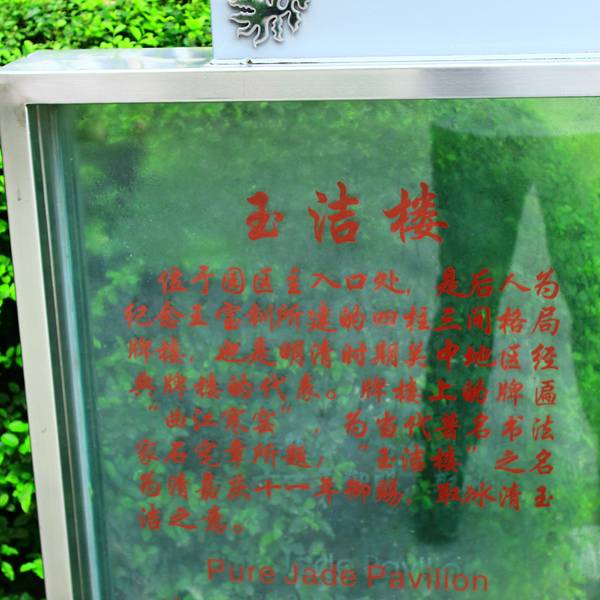 玉洁楼
位于园区主入口处，是后人为
纪念王宝钏所建的四柱三间格局
牌楼，也是明清时期关中地区经
典牌楼的代表。牌楼上的牌匾
“曲江寒窑”，为当代著名书法
家石宪章所题，“玉洁楼”之名
为清嘉庆十一年御赐，取冰清玉
洁之意。
Pure Jade Pavilion